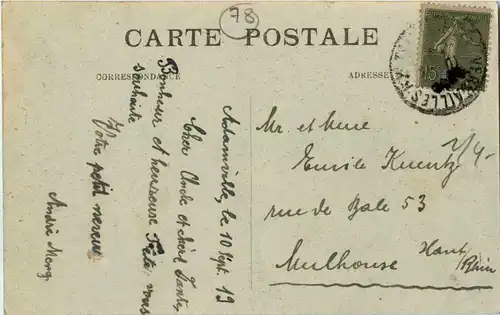 78
CARTE POSTALE
CORRESPONDANCE
ADRESSE
Adamville, le 10 Sept. 19
Cher Oncle et chère Tante,
Bonheur et heureuse Fête vous
souhaite
Votre petit neveu
André Meng
Mr. et Mme
Emile Kuentz
rue de Bale 53
Mulhouse
Haut
Rhin
15